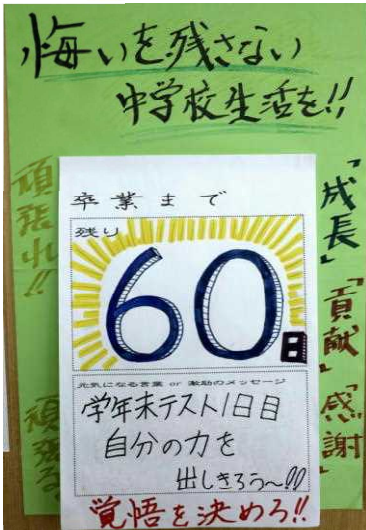 悔いを残さない
中学校生活を!!
頑張れ!!
「成長」「貢献」「感謝」
卒業まで
残り
60日
元気になる言葉 or 激励のメッセージ
学年末テスト1日目
自分の力を
出しきろう〜!!
覚悟を決めろ!!